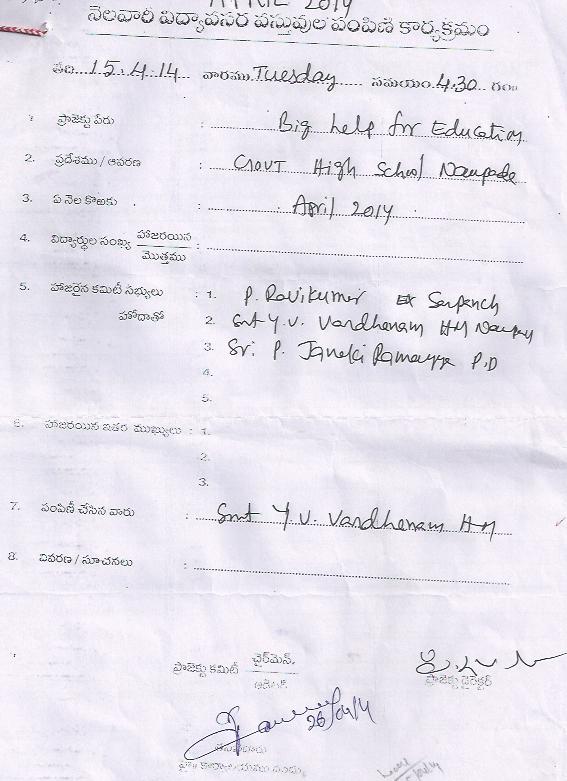 APRIL 2014
నెలవారి విద్యావసర వస్తువుల పంపిణి కార్యక్రమం
తేది 15.4.14 వారము Tuesday సమయం 4.30 గం॥
1. ప్రాజెక్టు పేరు : Big help for Education
2. ప్రదేశము / ఆవరణ : Govt High School Naupada
3. ఏ నెల కొఱకు : April 2014
4. విద్యార్థుల సంఖ్య హాజరయిన / మొత్తము :
5. హాజరైన కమిటీ సభ్యులు : 1. P. Ravikumar Ex Sarpench
హోదాతో 2. Smt Y.V. Vardhanam HM
3. Sri. P. Janaki Ramayya P.D
4.
5.
6. హాజరయిన ఇతర ముఖ్యులు : 1.
2.
3.
7. పంపిణీ చేసిన వారు : Smt Y.V. Vardhanam HM
8. వివరణ / సూచనలు :
ప్రాజెక్టు కమిటీ ఛైర్మెన్.
ప్రాజెక్టు డైరెక్టర్
26/04/14